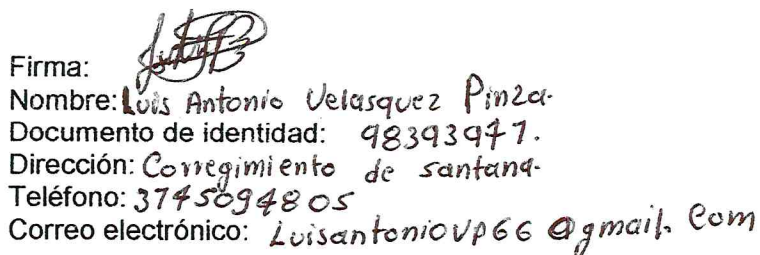 Firma:
Nombre: Luis Antonio Velasquez Pinza.
Documento de identidad: 98393947.
Dirección: Corregimiento de santana.
Teléfono: 3145094805
Correo electrónico: Luisantoniovp66@gmail.com